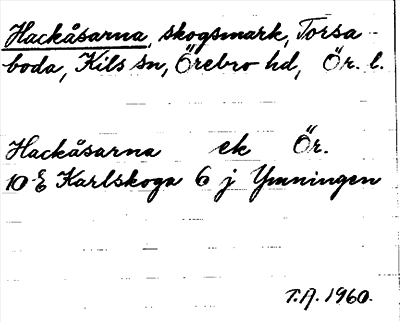 Hackåsarna, skogsmark, Torsa-
boda, Kils sn, Örebro hd, Ör. l.
Hackåsarna ek Ör.
10 E Karlskoga 6 j Ymningen
T.A. 1960.